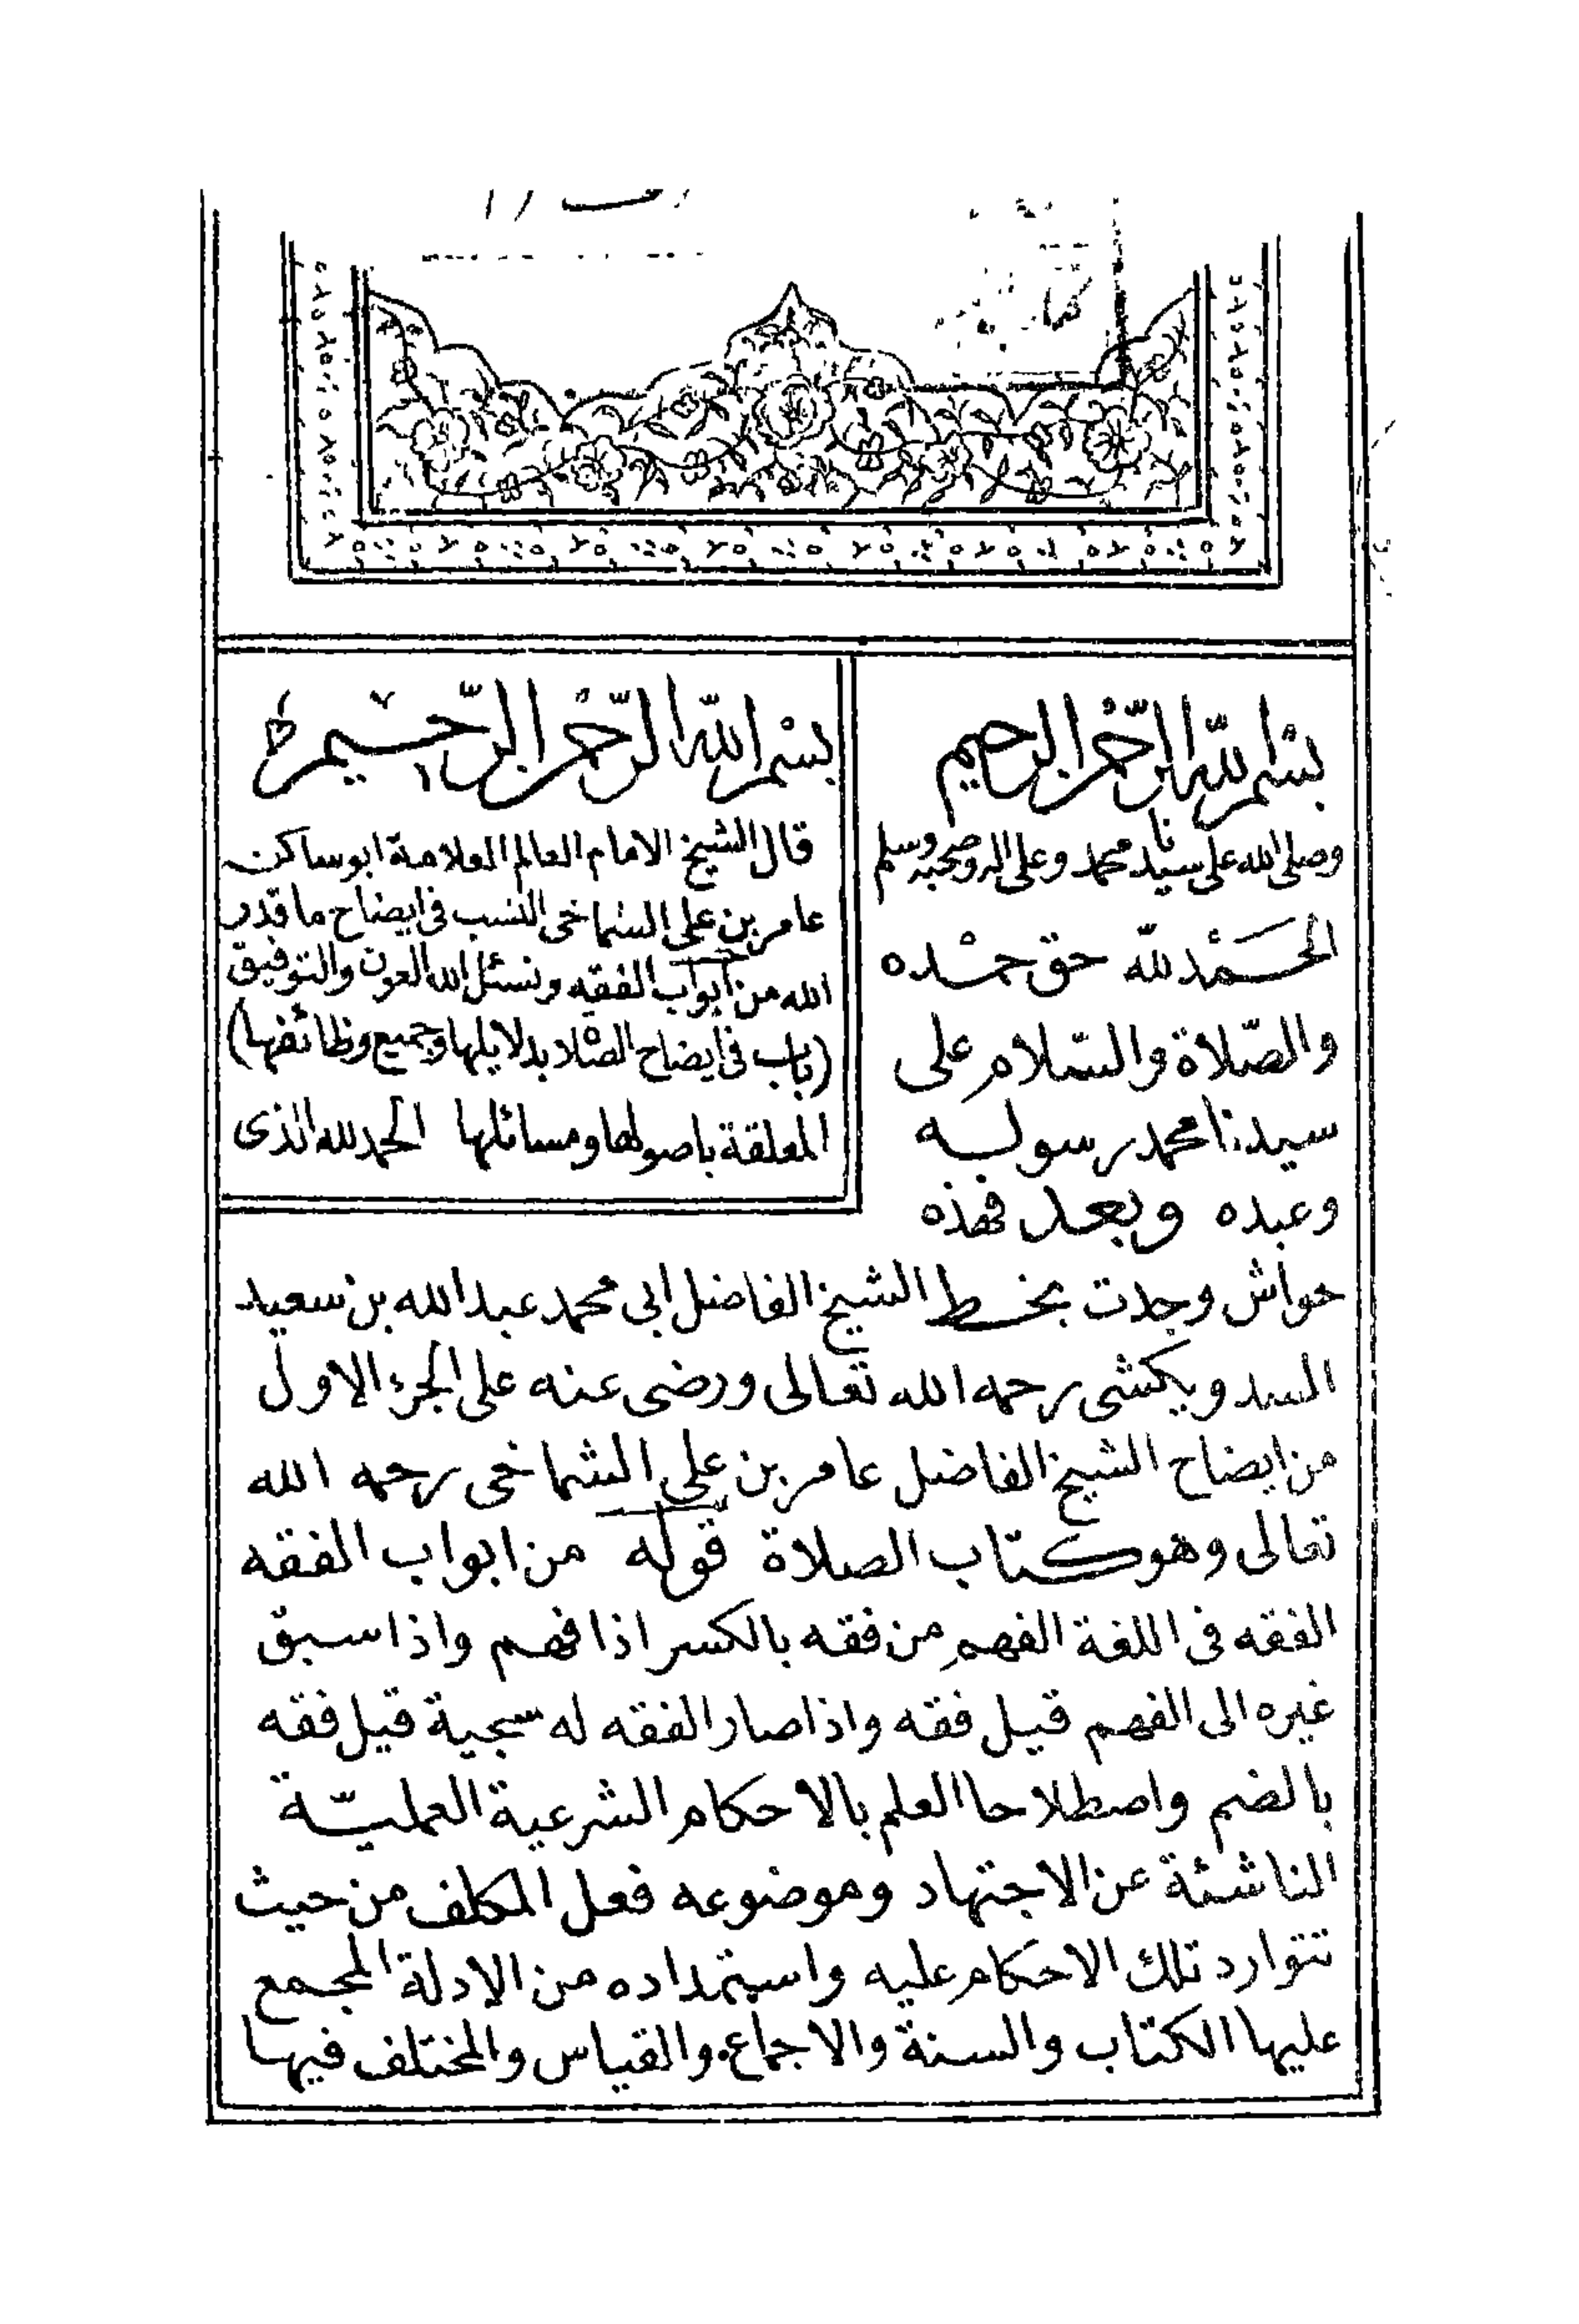 بسم الله الرحمن الرحيم
وصلى الله على سيدنا محمد وعلى اله وصحبه وسلم
الحمد لله حق حمده
والصّلاة والسّلام على
سيدنا محمد رسوله
وعبده وبعد فهذه
بسم الله الرّحمن الرّحيم
قال الشيخ الامام العالم العلامة ابو ساكن
عامر بن على الشماخى النسب فى ايضاح ما قدر
الله من ابواب الفقيه ونسئل الله العون والتوفيق
(باب فى ايضاح الصلاة بدلايلها وجميع وظائفها)
المعلقة باصولها ومسائلها الحمد لله الذى
حواش وجدت بخط الشيخ الفاضل ابى محمد عبد الله بن سعيد
السدويكشى رحمه الله تعالى ورضى عنه على الجزء الاول
من ايضاح الشيخ الفاضل عامر بن على الشماخى رحمه الله
تعالى وهو كتاب الصلاة قوله من ابواب الفقه
الفقه فى اللغة الفهم من فقه بالكسر اذا فهم واذا سبق
غيره الى الفهم قيل فقه واذا صار الفقه له سجية قيل فقه
بالضم واصطلاحا العلم بالاحكام الشرعية العمليّة
الناشئة عن الاجتهاد وموضوعه فعل المكلف من حيث
تتوارد تلك الاحكام عليه واستمداده من الادلة المجمع
عليها الكتاب والسنة والاجماع والقياس والمختلف فيها